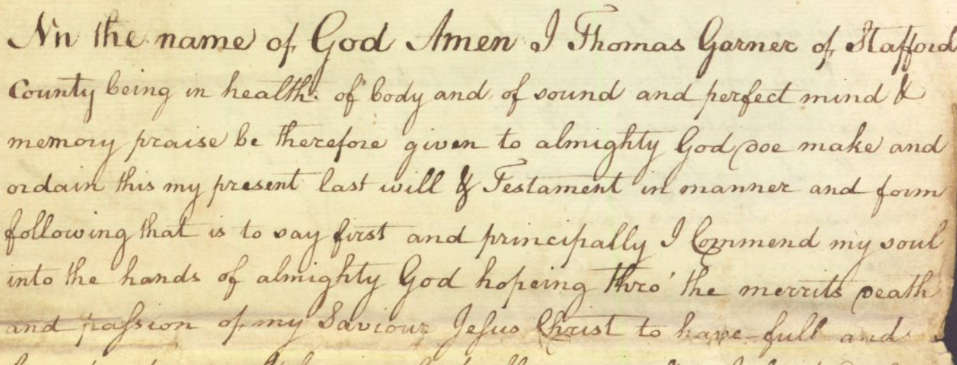 In the name of God Amen I Thomas Garner of Stafford
County being in health of body and of sound and perfect mind &
memory praise be therefore given to almighty God doe make and
ordain this my present last will & Testament in manner and form
following that is to say first and principally I Commend my soul
into the hands of almighty God hopeing thro' the merrits Death
and passion of my Saviour Jesus Christ to have full and